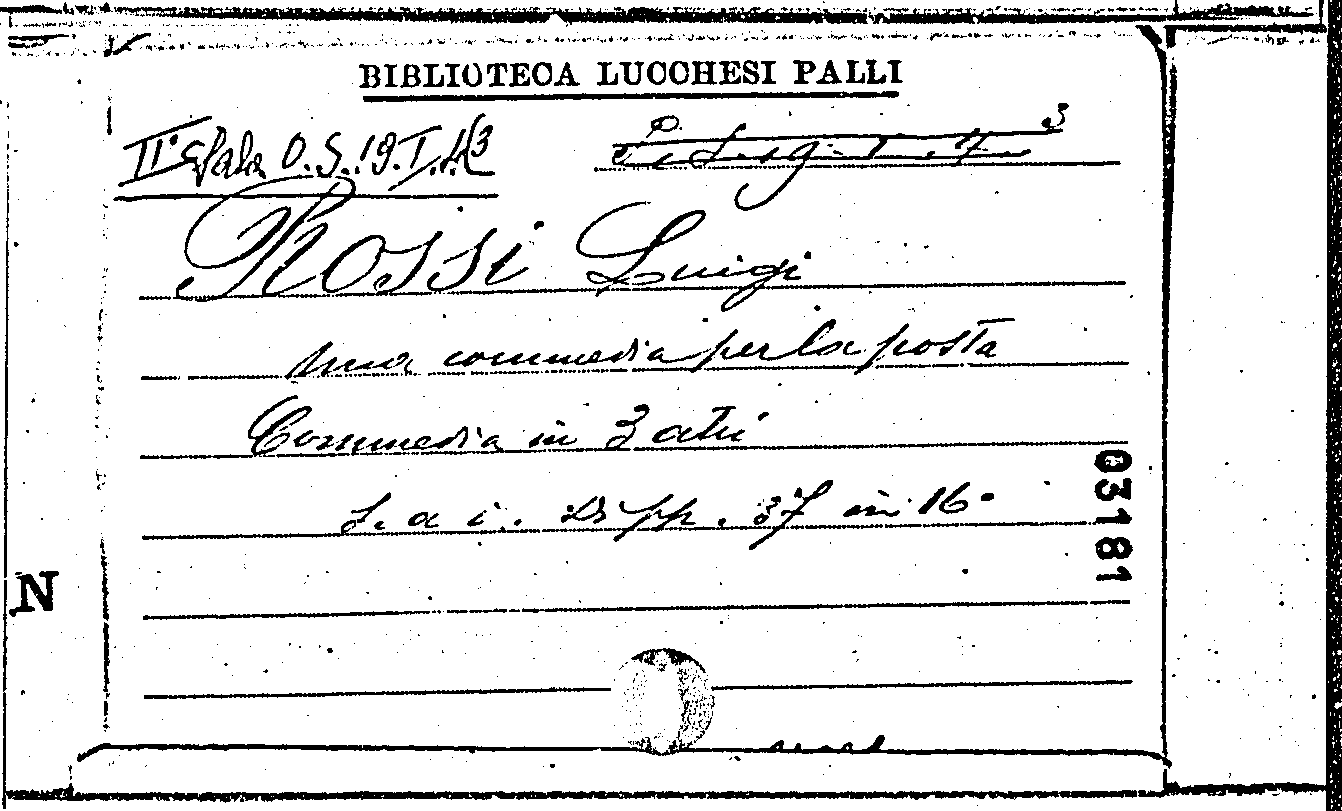 BIBLIOTECA LUCCHESI PALLI
IIª Sala O.S.19.I.4(3
ROSSI Luigi
Una commedia per la posta
Commedia in 3 atti
S. a i. Di pp. 37 in 16°
03181
N